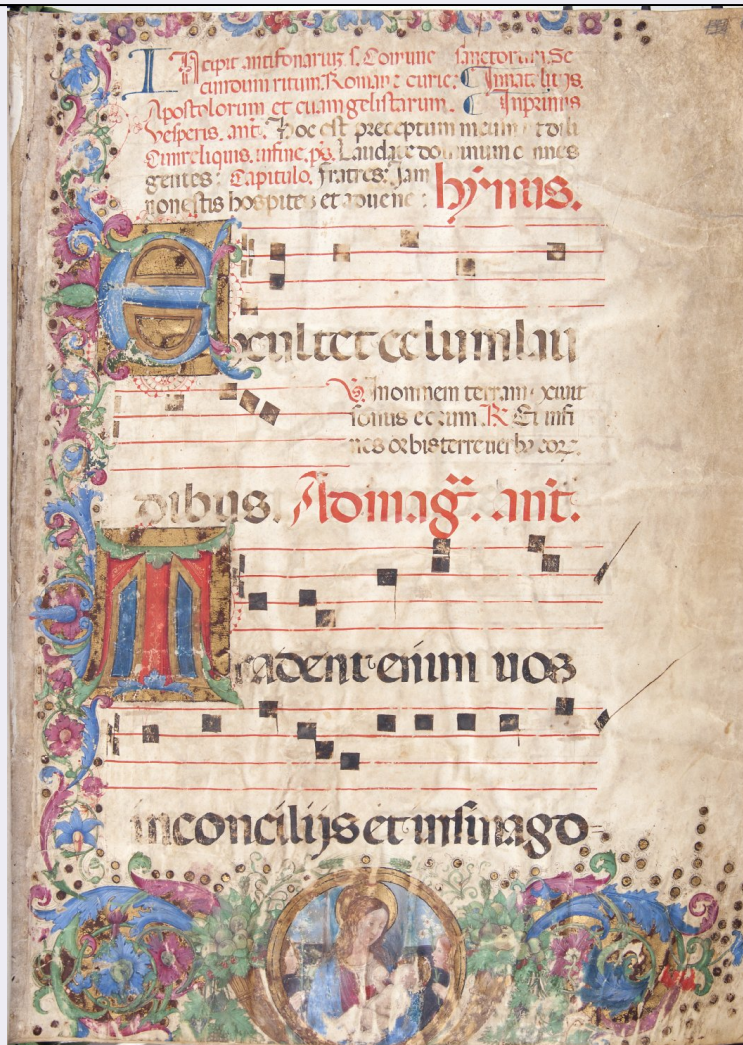 Incipit antifonarium s. Comune sanctorum. Se
cundum ritum Romane curie. In nat. litijs.
Apostolorum et euangelistarum. Inprimis
Vesperis. ant. Hoc est preceptum meum
Cum reliquis. infine. ps. Laudate dominum omnes
gentes: Capitulo. Fratres: Jam
non estis hospites et aduene:
hymnis.
Exultet celum lau
V. In omnem terram exiuit
sonus eorum. R. Et infi
nes orbis terre uerba eorz.
dibus. Ad mag. ant.
Tradent enim uos
in concilijs et in sinago=